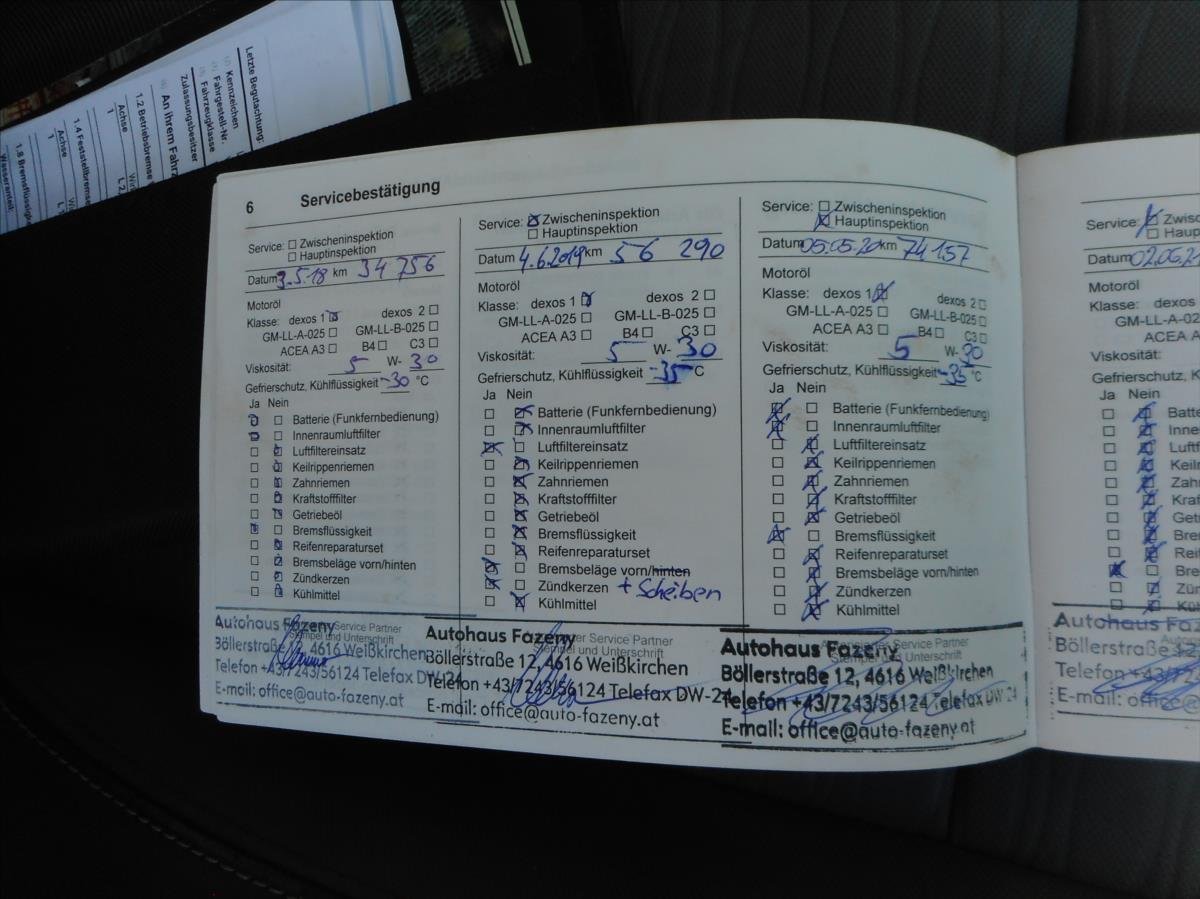 Letzte Begutachtung:
Kennzeichen
Fahrgestell-Nr.
Fahrzeugklasse
Zulassungsbesitzer
An ihrem Fahrz
1.2 Betriebsbremse
Achse
1
1.4 Feststellbremse
Achse
1
1.8 Bremsflüssigkeit
Wasseranteil:
6 Servicebestätigung
Service: ☐ Zwischeninspektion
☐ Hauptinspektion
Datum 3.5.18 km 34 756
Motoröl
Klasse: dexos 1 ☒ dexos 2 ☐
GM-LL-A-025 ☐ GM-LL-B-025 ☐
ACEA A3 ☐ B4 ☐ C3 ☐
Viskosität: 5 W- 30
Gefrierschutz, Kühlflüssigkeit -30 °C
Ja Nein
☒ ☐ Batterie (Funkfernbedienung)
☒ ☐ Innenraumluftfilter
☐ ☒ Luftfiltereinsatz
☐ ☒ Keilrippenriemen
☐ ☒ Zahnriemen
☐ ☒ Kraftstofffilter
☐ ☒ Getriebeöl
☒ ☐ Bremsflüssigkeit
☐ ☒ Reifenreparaturset
☐ ☒ Bremsbeläge vorn/hinten
☐ ☒ Zündkerzen
☐ ☒ Kühlmittel
Service Partner
Stempel und Unterschrift
Autohaus Fazeny
Böllerstraße 12, 4616 Weißkirchen
Telefon +43/7243/56124 Telefax DW-24
E-mail: office@auto-fazeny.at
Service: ☒ Zwischeninspektion
☐ Hauptinspektion
Datum 4.6.2019 km 56 290
Motoröl
Klasse: dexos 1 ☒ dexos 2 ☐
GM-LL-A-025 ☐ GM-LL-B-025 ☐
ACEA A3 ☐ B4 ☐ C3 ☐
Viskosität: 5 W- 30
Gefrierschutz, Kühlflüssigkeit -35 °C
Ja Nein
☐ ☒ Batterie (Funkfernbedienung)
☐ ☒ Innenraumluftfilter
☒ ☐ Luftfiltereinsatz
☐ ☒ Keilrippenriemen
☐ ☒ Zahnriemen
☐ ☒ Kraftstofffilter
☐ ☒ Getriebeöl
☐ ☒ Bremsflüssigkeit
☐ ☒ Reifenreparaturset
☒ ☐ Bremsbeläge vorn/hinten
☒ ☐ Zündkerzen + Scheiben
☐ ☒ Kühlmittel
Service Partner
Autohaus Fazeny
Böllerstraße 12, 4616 Weißkirchen
Telefon +43/7243/56124 Telefax DW-24
E-mail: office@auto-fazeny.at
Service: ☐ Zwischeninspektion
☒ Hauptinspektion
Datum 05.05.20 km 74157
Motoröl
Klasse: dexos 1 ☒ dexos 2 ☐
GM-LL-A-025 ☐ GM-LL-B-025 ☐
ACEA A3 ☐ B4 ☐ C3 ☐
Viskosität: 5 W- 30
Gefrierschutz, Kühlflüssigkeit -35 °C
Ja Nein
☒ ☐ Batterie (Funkfernbedienung)
☒ ☐ Innenraumluftfilter
☐ ☒ Luftfiltereinsatz
☐ ☒ Keilrippenriemen
☐ ☒ Zahnriemen
☐ ☒ Kraftstofffilter
☐ ☒ Getriebeöl
☒ ☐ Bremsflüssigkeit
☐ ☒ Reifenreparaturset
☐ ☒ Bremsbeläge vorn/hinten
☐ ☒ Zündkerzen
☐ ☒ Kühlmittel
Service Partner
Stempel und Unterschrift
Autohaus Fazeny
Böllerstraße 12, 4616 Weißkirchen
Telefon +43/7243/56124 Telefax DW-24
E-mail: office@auto-fazeny.at
Service: ☒ Zwisc
☐ Haupt
Datum 02.06.21
Motoröl
Klasse: dexos
GM-LL-A-02
ACEA A
Viskosität:
Gefrierschutz, Kühlf
Ja Nein
☐ ☒ Batte
☐ ☒ Inne
☐ ☒ Luft
☐ ☒ Keil
☐ ☒ Zah
☐ ☒ Kra
☐ ☒ Get
☐ ☒ Bre
☐ ☒ Rei
☒ ☐ Bre
☐ ☒ Zü
☐ ☒ Kü
Autohaus Faz
Böllerstraße 12
Telefon +43/72
E-mail: office